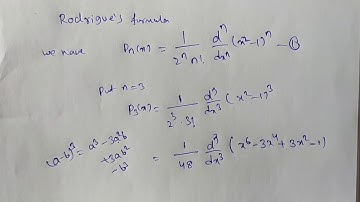 Rodrigue's formula
we have Pn(x) = 1/(2^n n!) d^n/dx^n (x²-1)^n - ⓑ
Put n=3
P3(x) = 1/(2^3·3!) d^3/dx^3 (x²-1)^3
(a-b)^3 = a^3-3a²b
+3ab²
-b^3
= 1/48 d^3/dx^3 (x^6-3x^4+3x²-1)